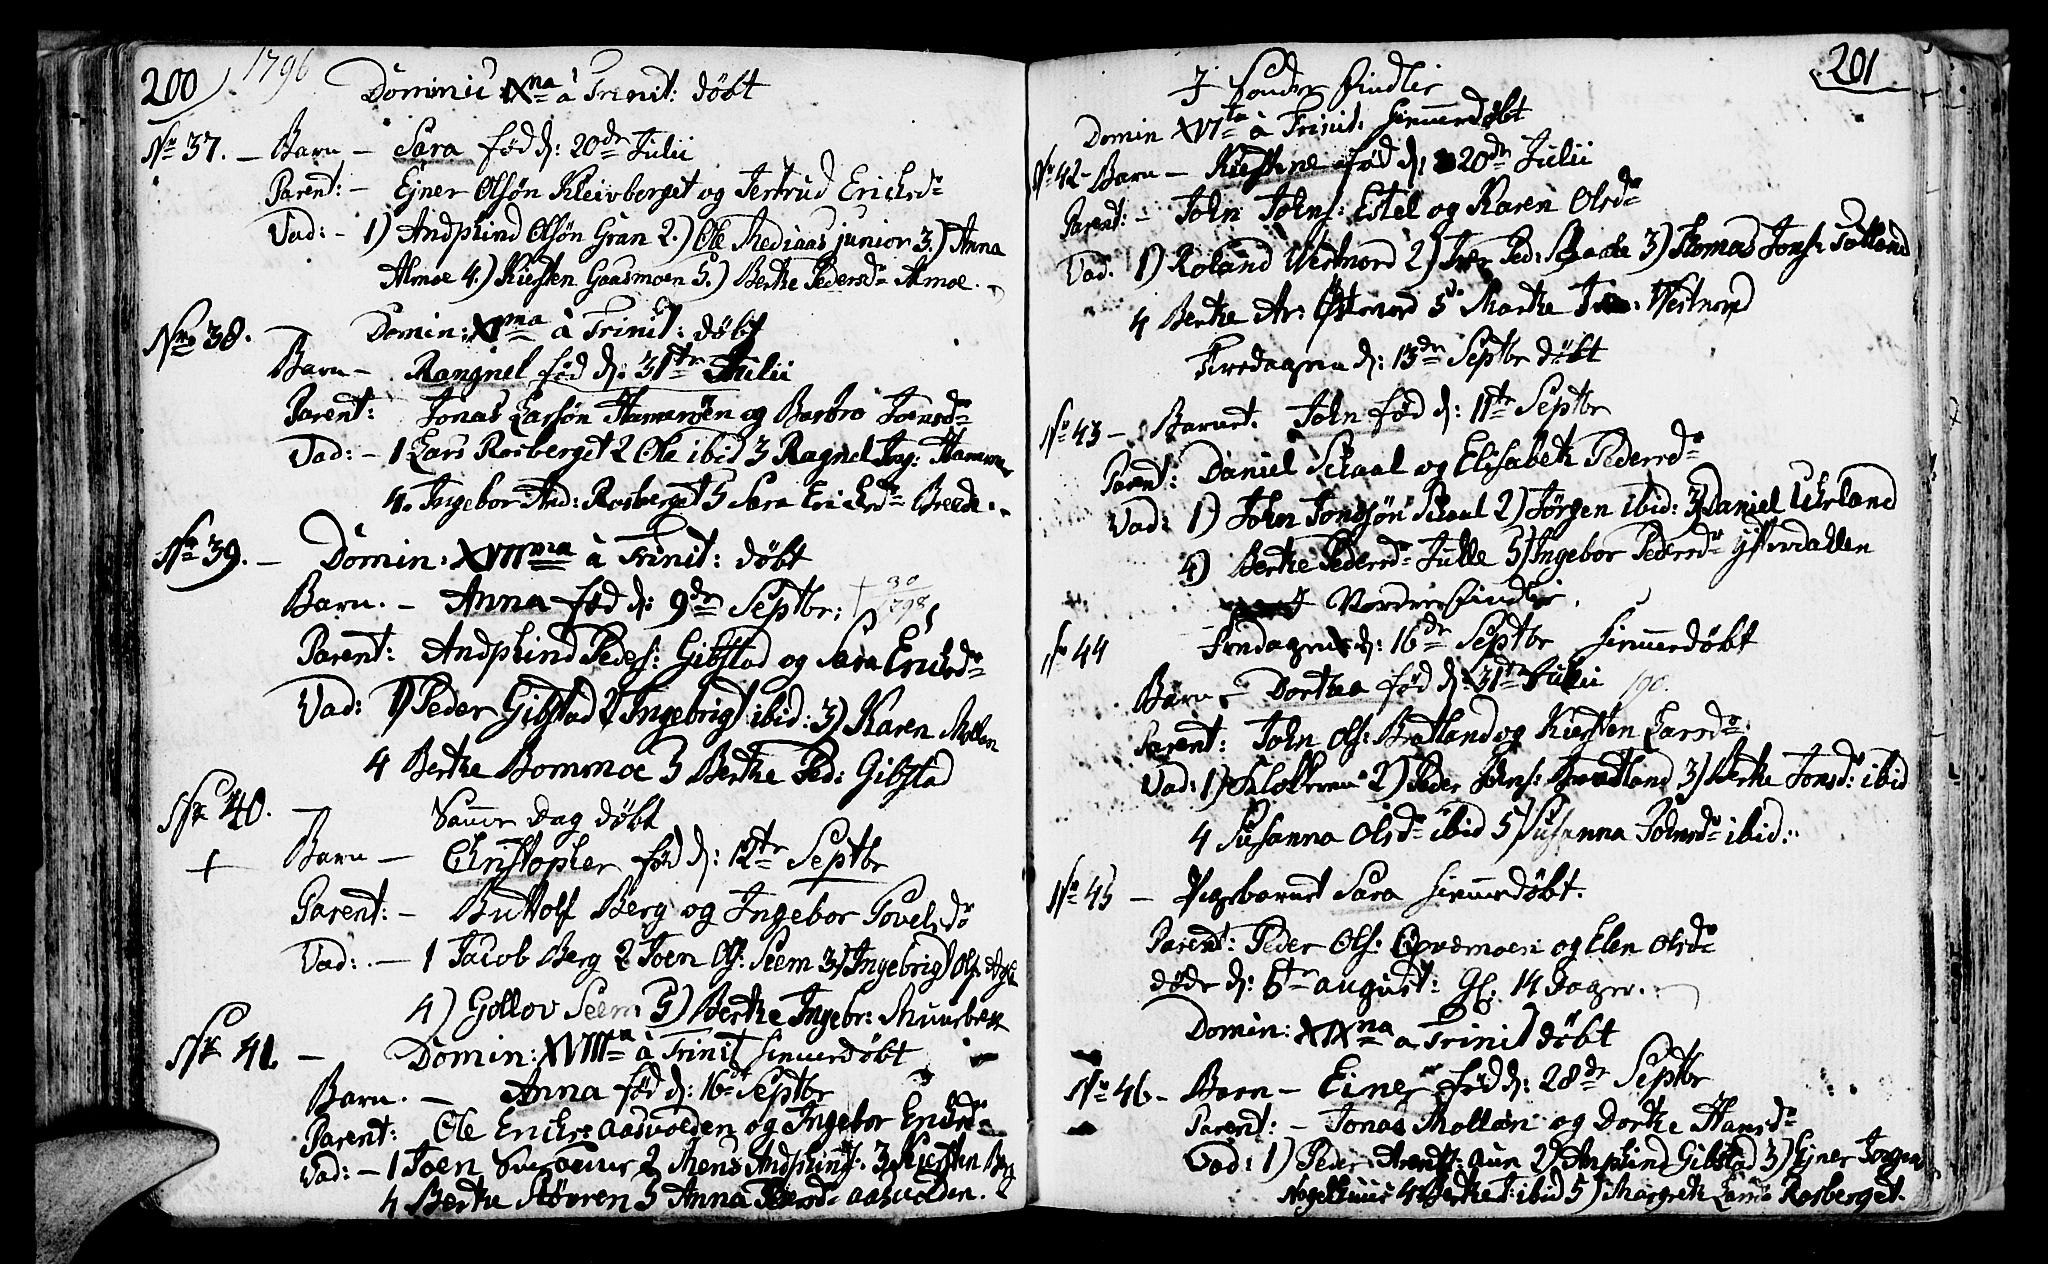 200 1796
Dominic: Xma à Trinit: døbt
No 37. – Barn – Sara fød d: 20de Julii
Parent: – Ejner Olsøn Kleivberget og Jertrud Ericksd:
Vad: – 1) Andphind Olsøn Gran 2.) Ole Mediaas junior 3.) Anna
Almoe 4.) Kiersten Gaasmoen 5.) Berthe Pedersd: Almoe.
No 38. – Domin: XIma à Trinit: døbt
Barn – Rangnel fød d: 31te Julii
Parent: Jonas Larsøn Hammeröen og Barbro Joensd:
Vad: – 1 Lars Rosberget 2 Ole ibid 3 Ragnel
4. Ingebor And: Rosberget 5 Sara Ericksd: Breede.
No 39. – Domin: XVIIma à Trinit: døbt
Barn. – Anna fød d: 9de Septbr:
Parent: Andphind Peders: Gibstad og Sara Ericksd:
Vad: 1) Peder Gibstad 2 Ingebrigt ibid: 3) Karen Mollen
4 Berthe Bommoe 5 Berthe Ped: Gibstad
No 40. – Samme Dag døbt
+ Barn – Christopher fød d: 12te Septbr
Parent: – Buttolf Berg og Ingebor Povelsd:
Vad: – 1 Jacob Berg 2 Joen Ols: Seem 3) Ingebrigt Ols:
4) Gollov Seem: 5) Berthe Ingebr:
No 41. – Domin: XVIIIta à Trinit hiemmedøbt
Barn. – Anna fød d: 16de Septbr
Parent: Ole Ericks: Aasvolden og Ingebor Ericksd:
Vad: – 1 Joen 2 Mons Andphinds: 3 Kiersten Berg
4 Berthe Støvren 5 Anna Pedersd: Aasvolden.
201
I Søndre Findlie
Domin XVIta à Trinit: hiemmedøbt
No 42 – Barn – Kiestine fød d: 20de Julii
Parent: – John Johns: Estel og Karen Olsd:
Vad. 1) Roland Vestnord 2) Iver Ped: 3) Thomas Jons: Totland
4 Berthe Ar: Østnord 5 Marthe Vestnord
Tirsdagen d: 13de Septbr døbt
No 43 – Barnet. John fød d: 11te Septbr
Parent: Daniel Skaal og Elisabeth Pedersd:
Vad: 1) John Jondsøn Skaal 2) Jørgen ibid: 3) Daniel Uhrland
4) Berthe Pedersd: Julle 5) Ingebor Pedersd:
I Nordre Findlie.
No 44 Fredagen d: 16de Septbr hiemmedøbt
Barn – Dorthea fød d: 31te Julii
Parent: John Ols: Bratland og Kiersten Larsd:
Vad: 1) Klokkeren 2) Peder Johns: Bratland 3) Berthe Jonsd: ibid
4 Susanna Olsd: ibid 5) Susanna Johnsd: ibid:
No 45 – Pigebarnet Sara hiemmedøbt.
Parent: Peder Ols: og Elen Olsd:
døde d: 6te august: Gl: 14 dager.
Domin: XIXna a Trinit døbt
No 46 – Barn – Einer fød d: 28de Septbr
Parent: – Jonas Mollen og Dorthe Hansd:
Vad: 1) Peder Arents: Aun 2) Anphind Gibstad 3) Ejner Jørgen
4 Berthe ibid 5) Margreth Larsd: Rosberget.